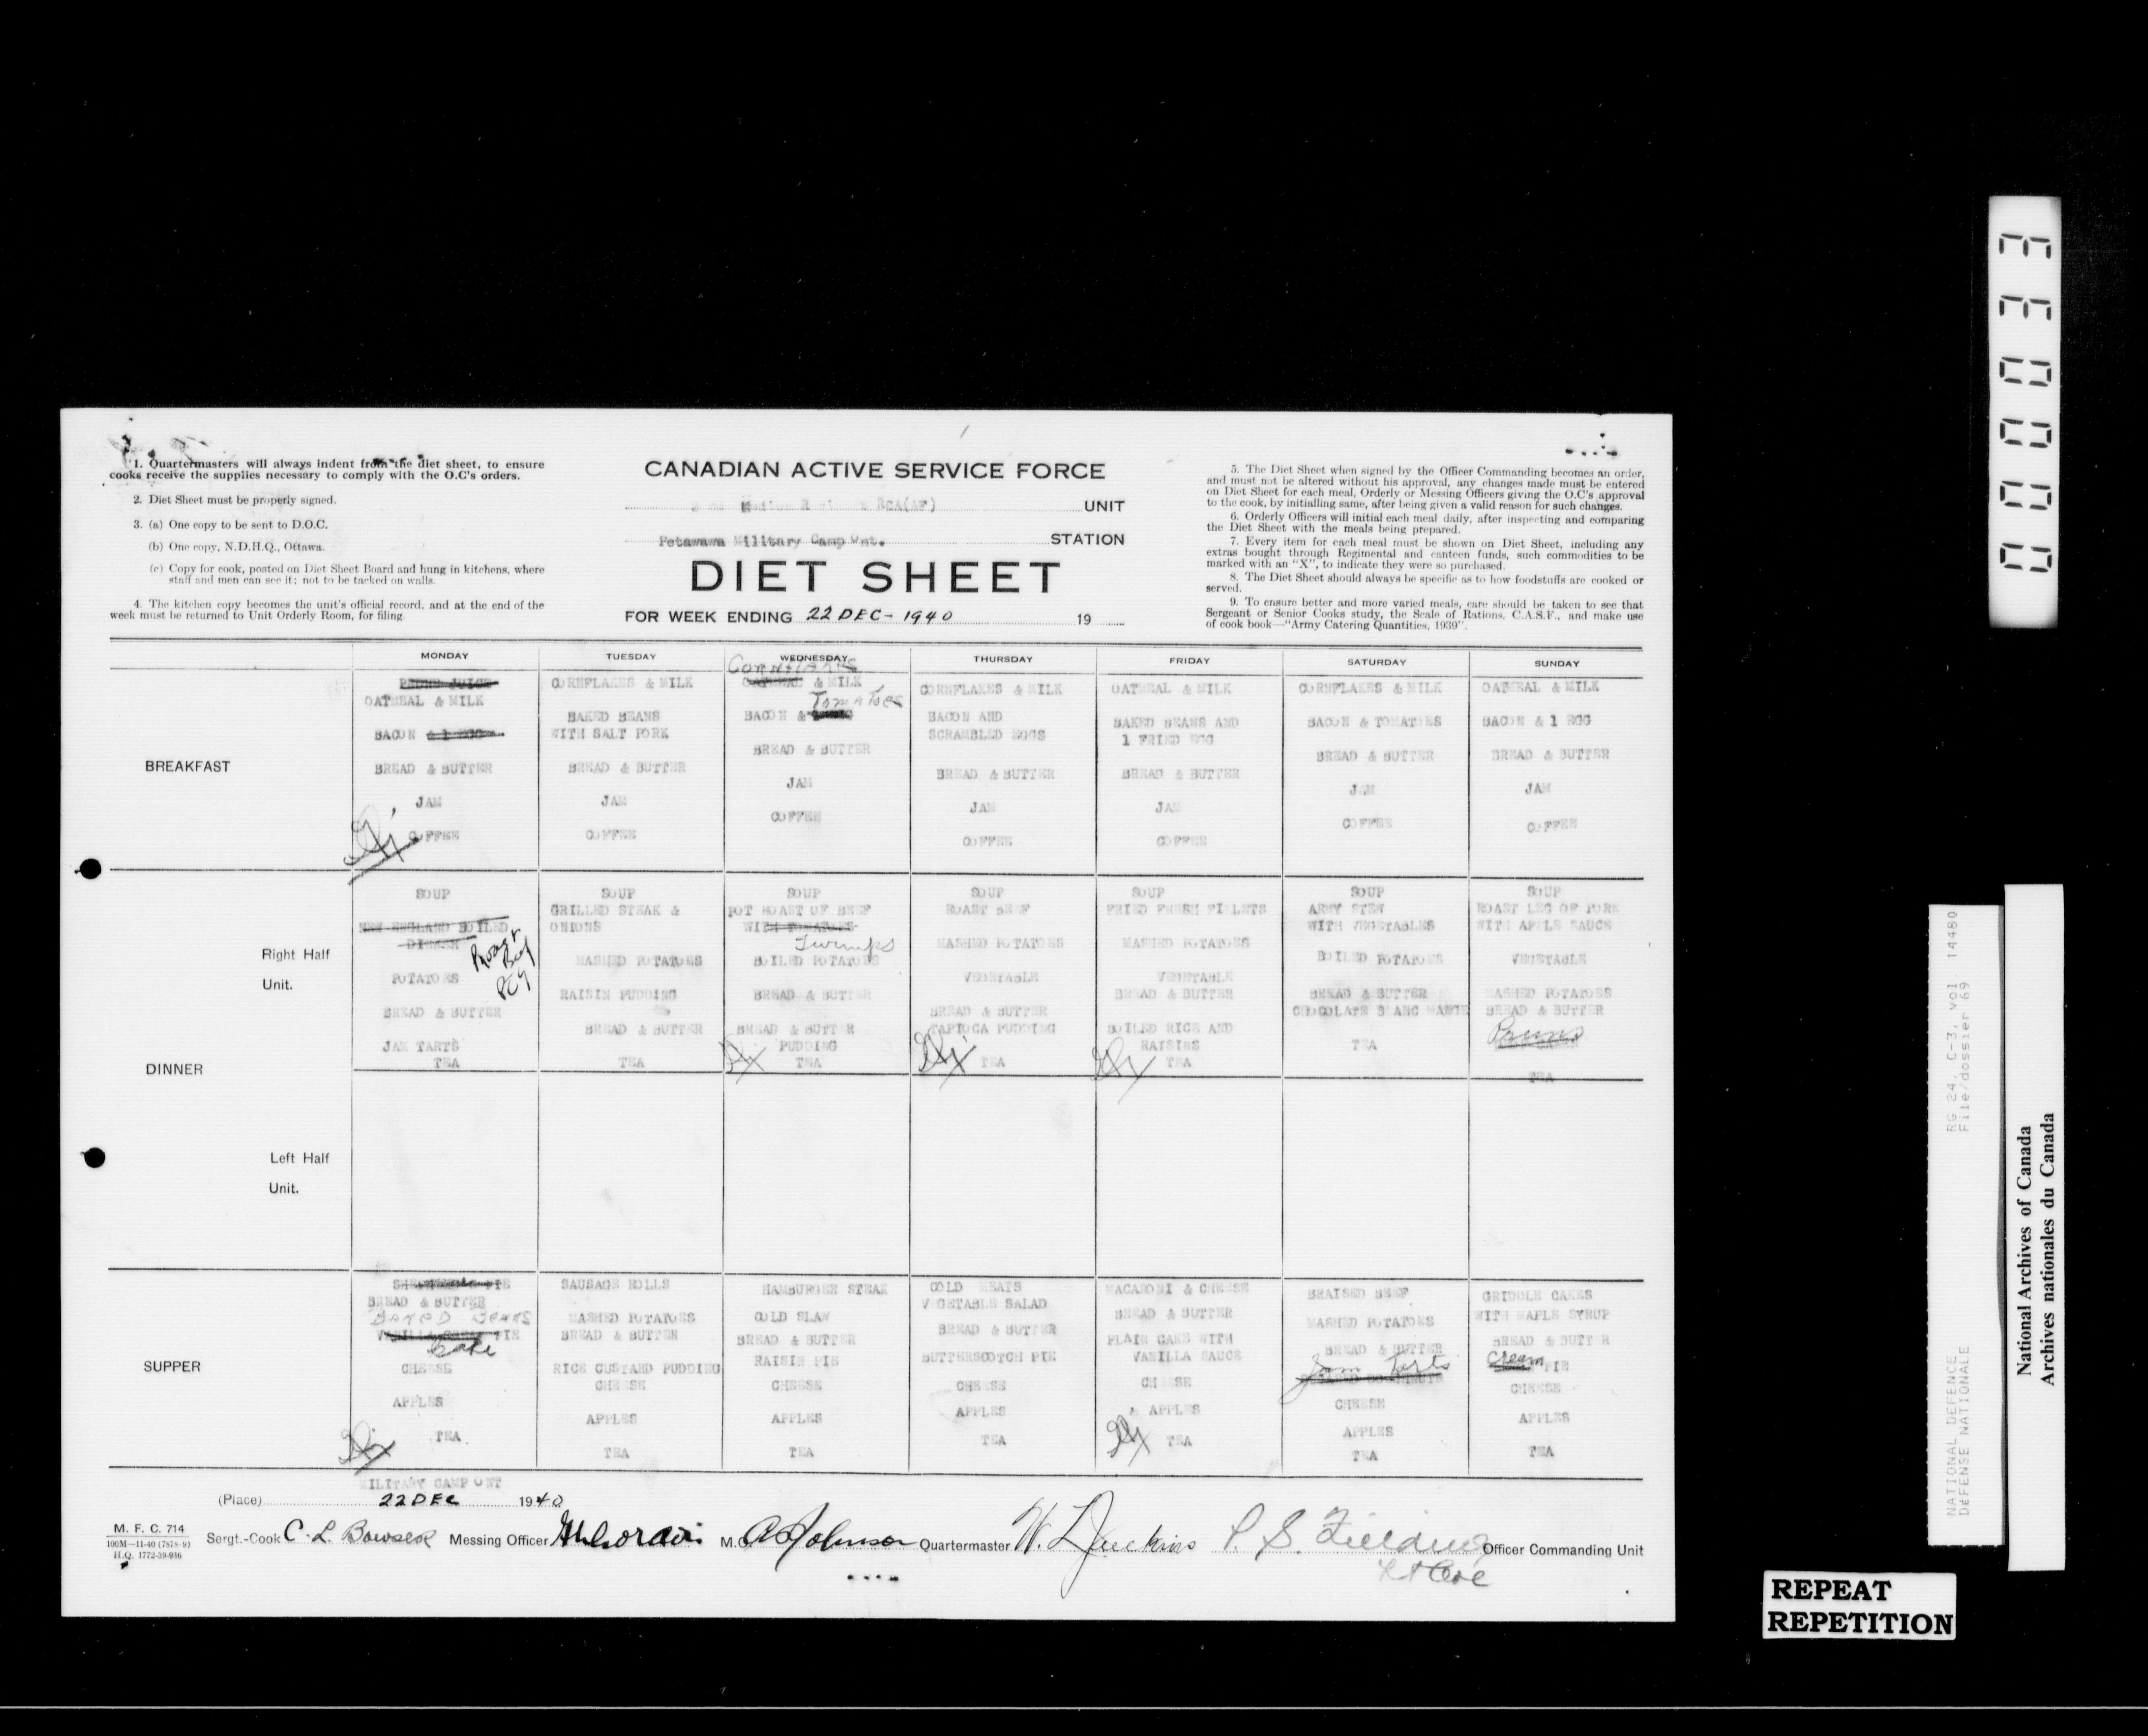 1. Quartermasters will always indent from the diet sheet, to ensure
cooks receive the supplies necessary to comply with the O.C's orders.
2. Diet Sheet must be properly signed.
3. (a) One copy to be sent to D.O.C.
(b) One copy, N.D.H.Q., Ottawa.
(c) Copy for cook, posted on Diet Sheet Board and hung in kitchens, where
staff and men can see it; not to be tacked on walls.
4. The kitchen copy becomes the unit's official record, and at the end of the
week must be returned to Unit Orderly Room, for filing.
CANADIAN ACTIVE SERVICE FORCE
RCA(AF) UNIT
Petawawa Military Camp Ont. STATION
DIET SHEET
FOR WEEK ENDING 22 DEC - 1940 19
5. The Diet Sheet when signed by the Officer Commanding becomes an order,
and must not be altered without his approval, any changes made must be entered
on Diet Sheet for each meal, Orderly or Messing Officers giving the O.C's approval
to the cook, by initialling same, after being given a valid reason for such changes.
6. Orderly Officers will initial each meal daily, after inspecting and comparing
the Diet Sheet with the meals being prepared.
7. Every item for each meal must be shown on Diet Sheet, including any
extras bought through Regimental and canteen funds, such commodities to be
marked with an "X", to indicate they were so purchased.
8. The Diet Sheet should always be specific as to how foodstuffs are cooked or
served.
9. To ensure better and more varied meals, care should be taken to see that
Sergeant or Senior Cooks study, the Scale of Rations, C.A.S.F., and make use
of cook book—"Army Catering Quantities, 1939".
MONDAY
TUESDAY
WEDNESDAY
THURSDAY
FRIDAY
SATURDAY
SUNDAY
BREAKFAST
JUICE
OATMEAL & MILK
BACON & 1 EGG
BREAD & BUTTER
JAM
COFFEE
CORNFLAKES & MILK
BAKED BEANS
WITH SALT PORK
BREAD & BUTTER
JAM
COFFEE
CORNFLAKES
OATMEAL & MILK
TOMATOES
BACON &
BREAD & BUTTER
JAM
COFFEE
CORNFLAKES & MILK
BACON AND
SCRAMBLED EGGS
BREAD & BUTTER
JAM
COFFEE
OATMEAL & MILK
BAKED BEANS AND
1 FRIED EGG
BREAD & BUTTER
JAM
COFFEE
CORNFLAKES & MILK
BACON & TOMATOES
BREAD & BUTTER
JAM
COFFEE
OATMEAL & MILK
BACON & 1 EGG
BREAD & BUTTER
JAM
COFFEE
DINNER
Right Half
Unit.
SOUP
NEW ENGLAND BOILED
DINNER
Roast
POTATOES
BREAD & BUTTER
JAM TARTS
TEA
SOUP
GRILLED STEAK &
ONIONS
MASHED POTATOES
RAISIN PUDDING
BREAD & BUTTER
TEA
SOUP
POT ROAST OF BEEF
WITH
Turnips
BOILED POTATOES
BREAD & BUTTER
BREAD & BUTTER
PUDDING
TEA
SOUP
ROAST BEEF
MASHED POTATOES
VEGETABLE
BREAD & BUTTER
TAPIOCA PUDDING
TEA
SOUP
FRIED FRESH FILLETS
MASHED POTATOES
VEGETABLE
BREAD & BUTTER
BOILED RICE AND
RAISINS
TEA
SOUP
ARMY STEW
WITH VEGETABLES
BOILED POTATOES
BREAD & BUTTER
CHOCOLATE BLANC MANGE
TEA
SOUP
ROAST LEG OF PORK
WITH APPLE SAUCE
VEGETABLE
MASHED POTATOES
BREAD & BUTTER
TEA
Left Half
Unit.
SUPPER
PIE
BREAD & BUTTER
BAKED BEANS
VANILLA CREAM PIE
Cake
CHEESE
APPLES
TEA
SAUSAGE ROLLS
MASHED POTATOES
BREAD & BUTTER
RICE CUSTARD PUDDING
CHEESE
APPLES
TEA
HAMBURGER STEAK
COLD SLAW
BREAD & BUTTER
RAISIN PIE
CHEESE
APPLES
TEA
COLD MEATS
VEGETABLE SALAD
BREAD & BUTTER
BUTTERSCOTCH PIE
CHEESE
APPLES
TEA
MACARONI & CHEESE
BREAD & BUTTER
PLAIN CAKE WITH
VANILLA SAUCE
CHEESE
APPLES
TEA
BRAISED BEEF
MASHED POTATOES
BREAD & BUTTER
Jam Tarts
CHEESE
APPLES
TEA
GRIDDLE CAKES
WITH MAPLE SYRUP
BREAD & BUTT R
Cream PIE
CHEESE
APPLES
TEA
MILITARY CAMP ONT
(Place) 22 DEC 1940
M. F. C. 714
100M—11-40 (7878-9)
H.Q. 1772-39-936
Sergt.-Cook C. L. Bowser Messing Officer M.O. Johnson Quartermaster W. L. Jenkins P. S. Fielding Officer Commanding Unit
Lt Col
00033
RG 24, C-3, vol. 14480
File/dossier 69
NATIONAL DEFENCE
DÉFENSE NATIONALE
National Archives of Canada
Archives nationales du Canada
REPEAT
REPETITION